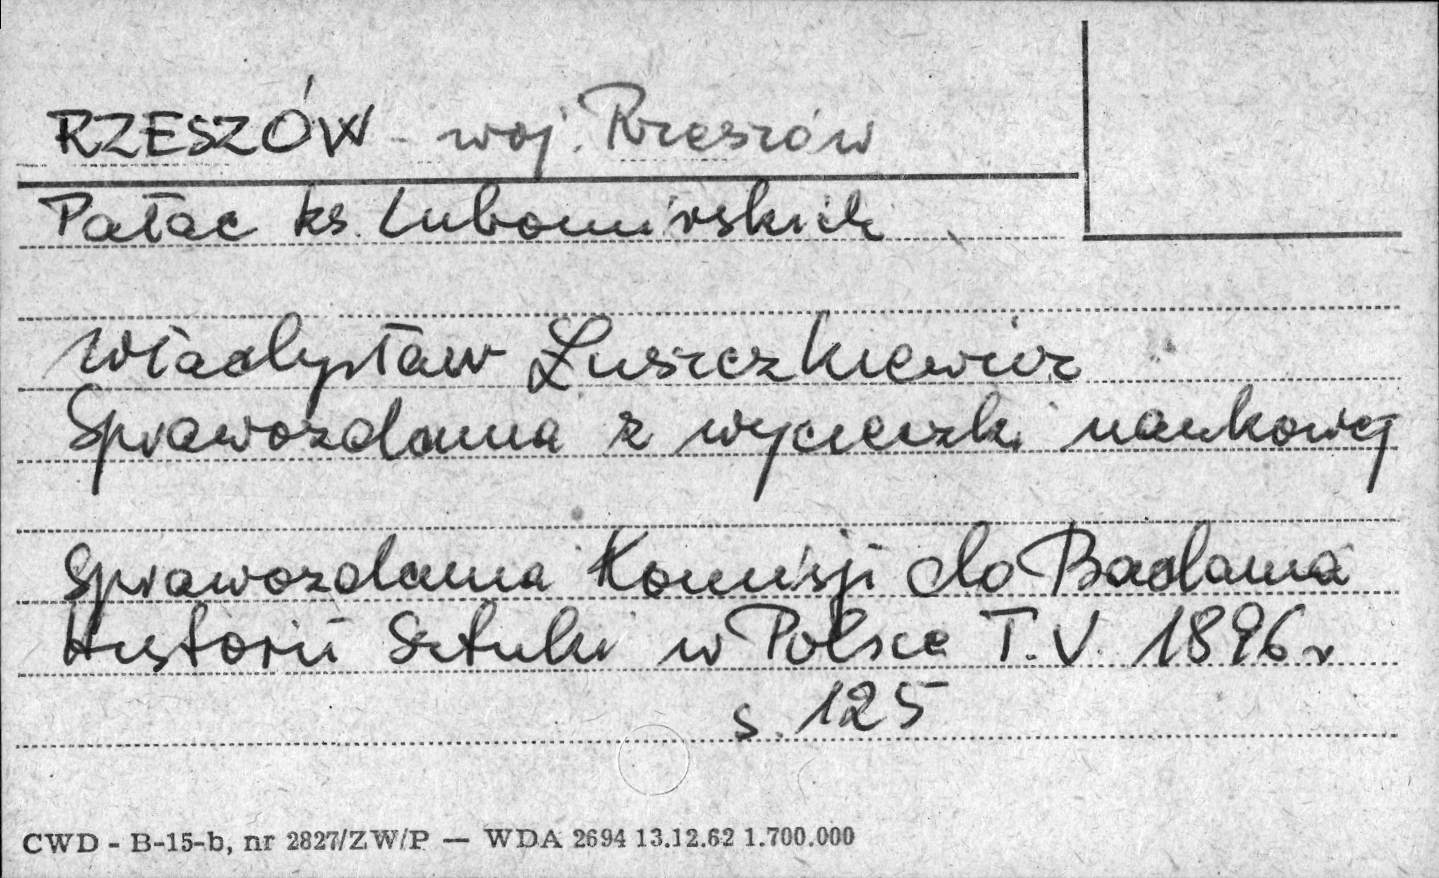 RZESZÓW - woj. Rzeszów
Pałac ks. Lubomirskich
Władysław Łuszczkiewicz
Sprawozdania z wycieczki naukowej
Sprawozdania Komisji do Badania
Historii Sztuki w Polsce T. V. 1896 r
s. 125
CWD - B-15-b, nr 2827/ZW/P — WDA 2694 13.12.62 1.700.000